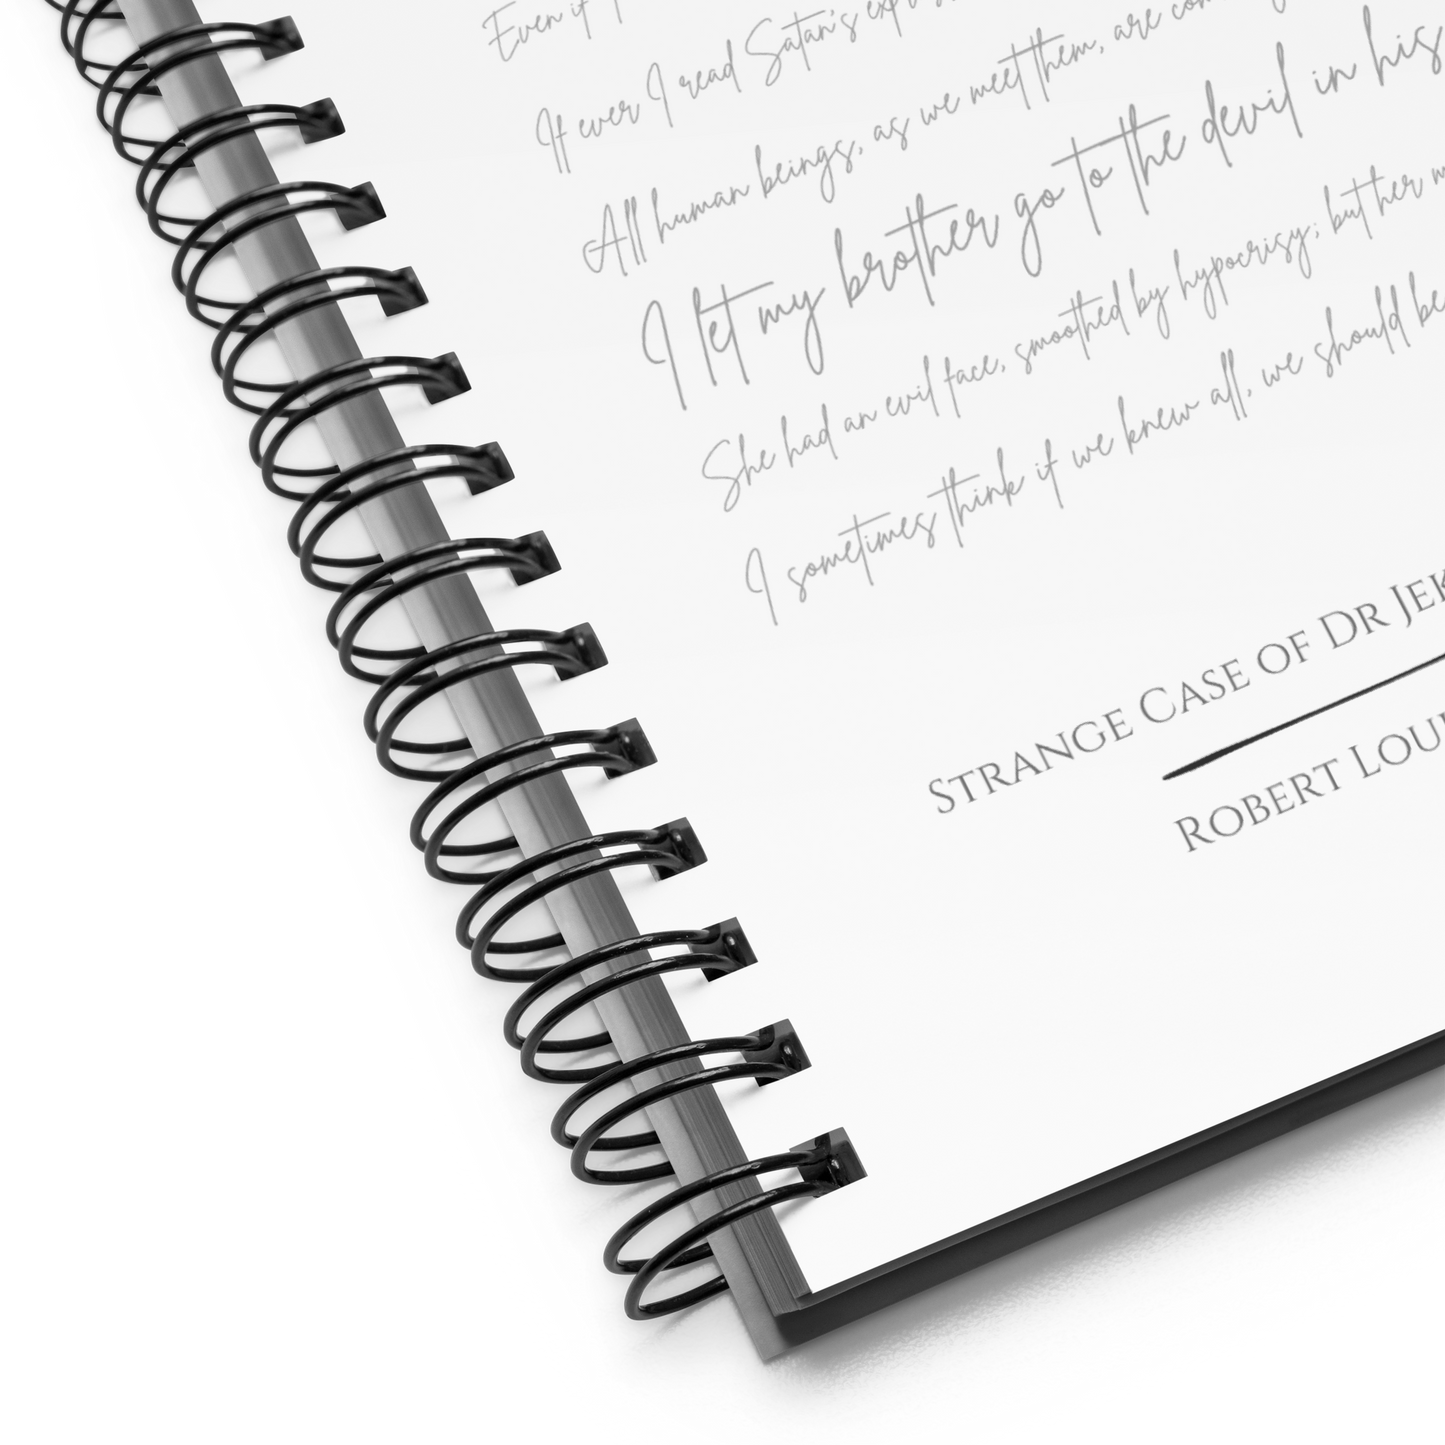 Even if
If ever I read Satan's
All human beings, as we meet them, are
I let my brother go to the devil in his
She had an evil face, smoothed by hypocrisy; but her
I sometimes think if we knew all, we should be
Strange Case of Dr Jek
Robert Loui